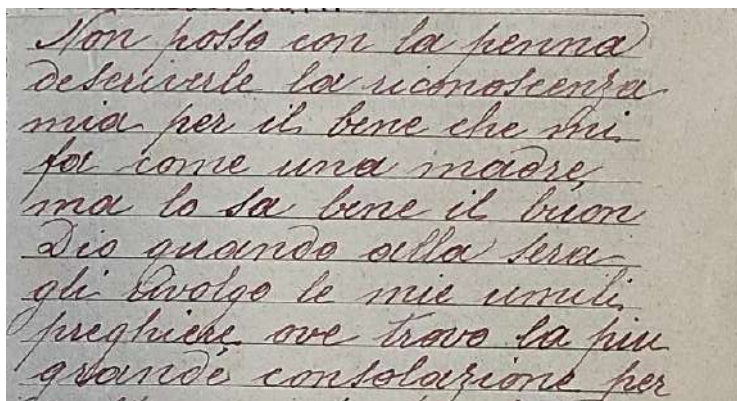 Non posso con la penna
descriverle la riconoscenza
mia per il bene che mi
fa come una madre
ma lo sa bene il buon
Dio quando alla sera
gli rivolgo le mie umili
preghiere ove trovo la piu
grande consolazione per